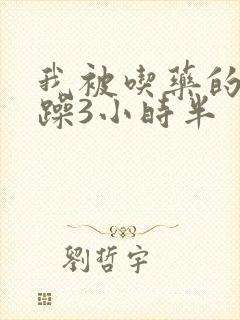 我被喫藥的
躁3小時半
劉哲宇